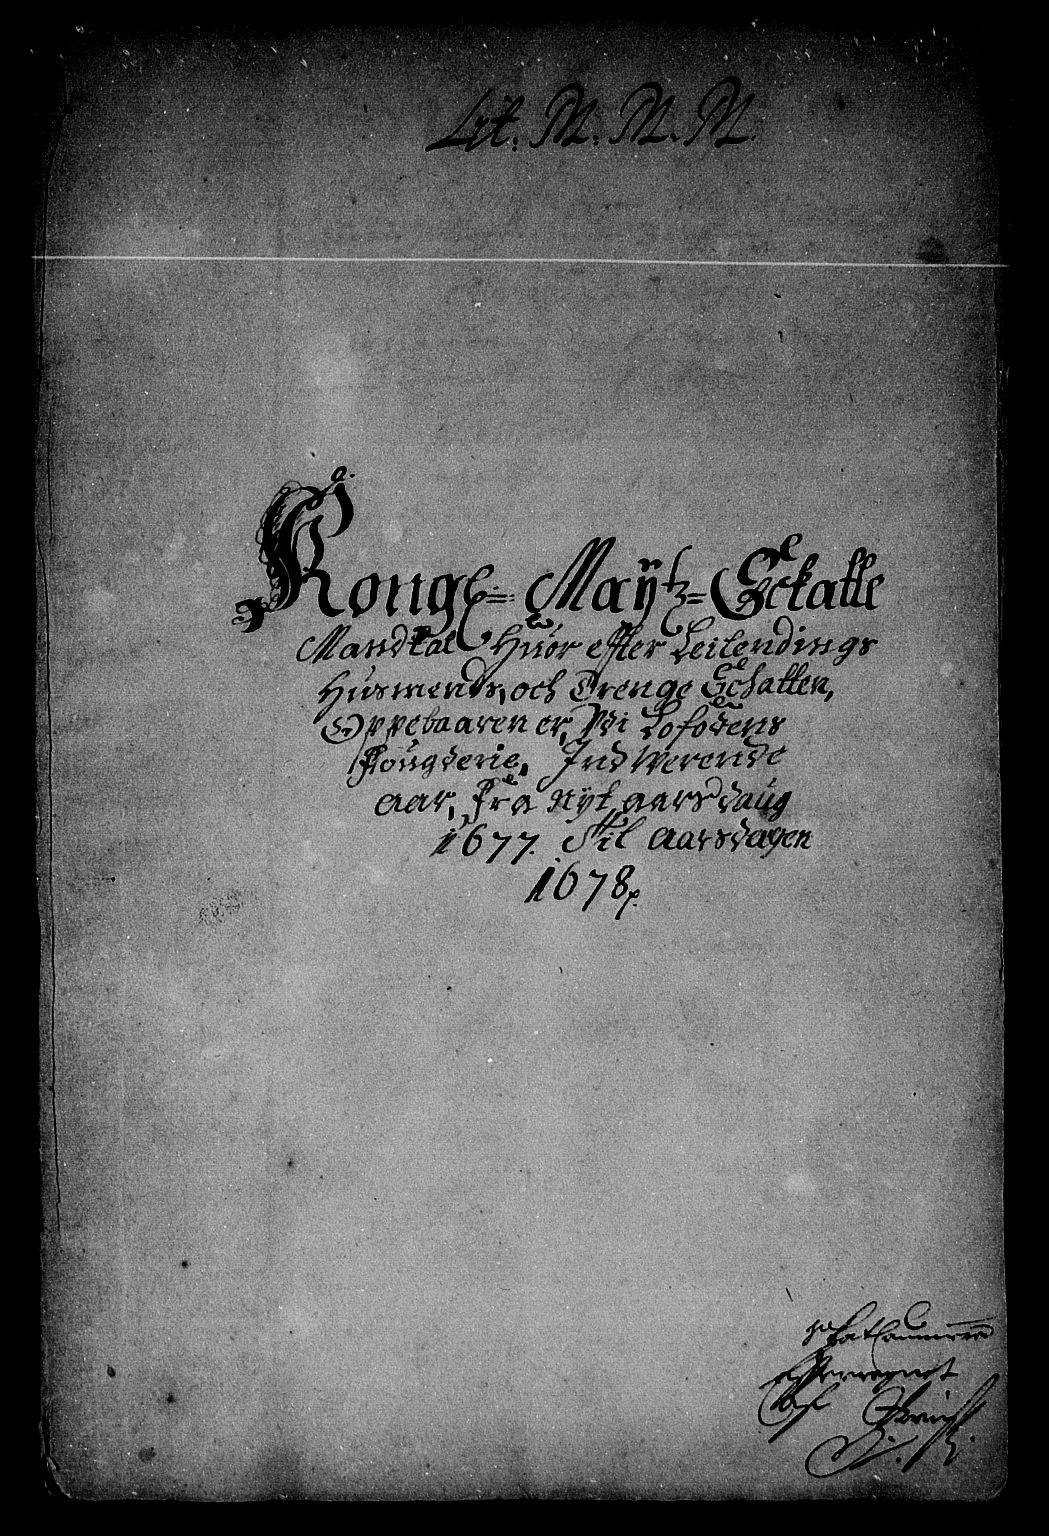 Lit. M. M. M.
Kong: Maÿtz= Schatte
Mandtal Huor effter Leilendings
Husmends, och Drenge Schatten,
Oppebaaren er, Vdi Lofodens
Fougderie, Ind Werende
aar, Fra nÿt aarsdaug
1677. Til aarsdagen
1678